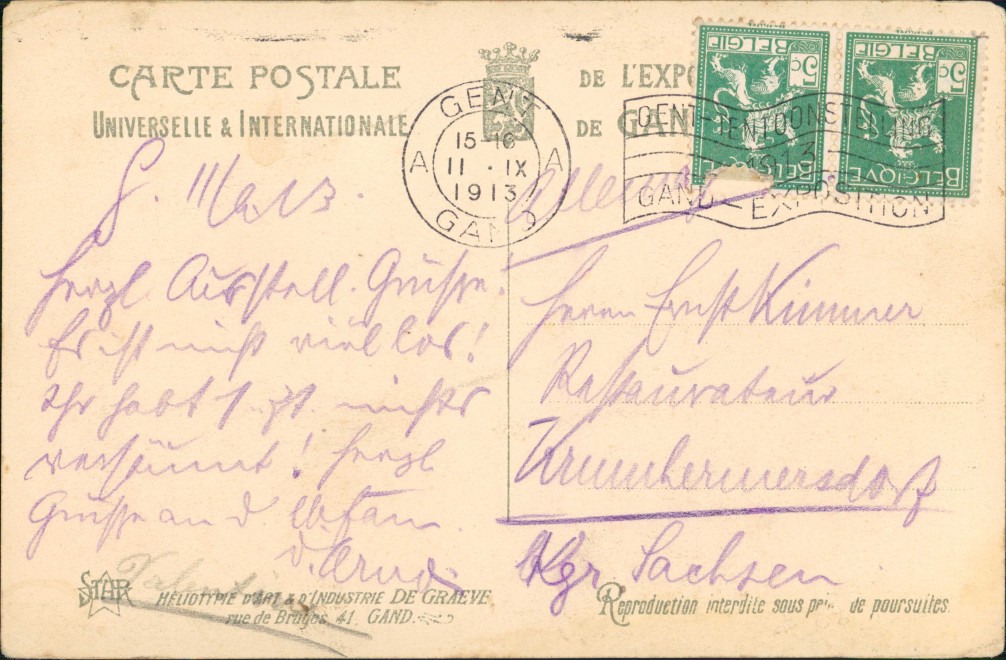 CARTE POSTALE
UNIVERSELLE & INTERNATIONALE
DE L'EXPO
DE GAN
GENT
15-16
A 11 · IX A
1913
GAND
GENT-TENTOONSTELLING
1913
GAND-EXPOSITION
BELGIE
5c
BELGIQUE
BELGIE
5c
BELGIQUE
Herzl Ausstell. Grüsse.
Es ist nicht viel los!
Ihr habt nichts
versäumt! Herzl
Grüsse an d.
Herrn Ernst Kimmer
Restaurateur
Krumhermersdorf
Kgr. Sachsen
STAR
Valentin
HÉLIOTYPIE D'ART & D'INDUSTRIE DE GRAEVE
rue de Bruges 41 GAND.
Reproduction interdite sous de poursuites.